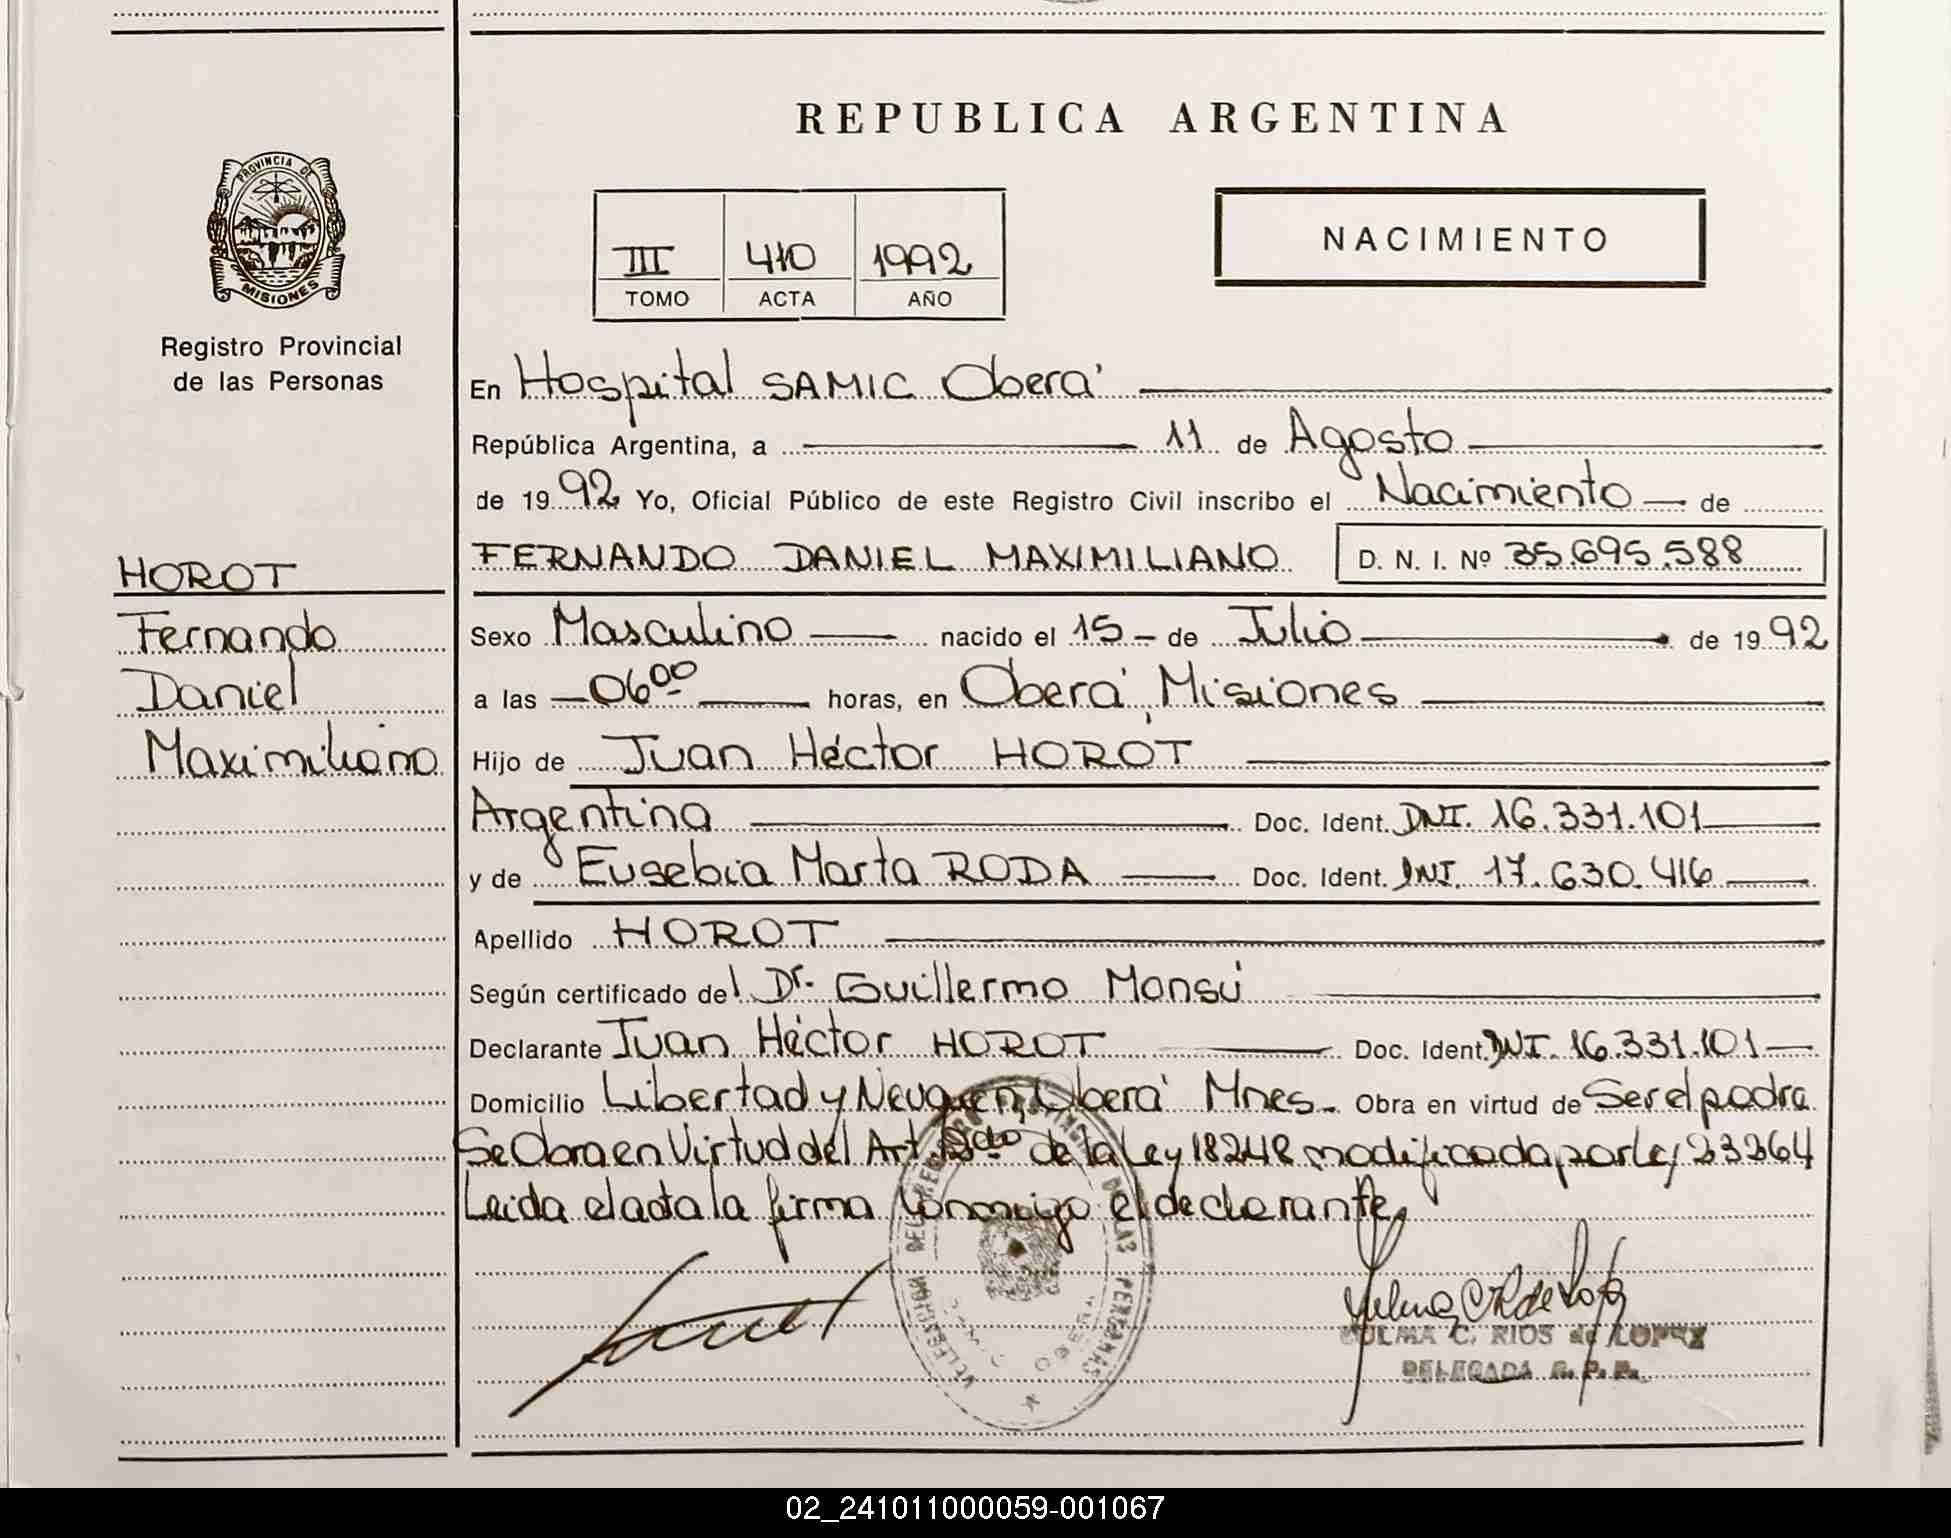 REPUBLICA ARGENTINA
PROVINCIA DE
MISIONES
Registro Provincial
de las Personas
III 410 1992
TOMO ACTA AÑO
NACIMIENTO
En Hospital SAMIC Oberá
República Argentina, a 11 de Agosto
de 1992 Yo, Oficial Público de este Registro Civil inscribo el Nacimiento de
FERNANDO DANIEL MAXIMILIANO D. N. I. Nº 35.695.588
HOROT
Fernando
Daniel
Maximiliano
Sexo Masculino nacido el 15 de Julio de 1992
a las 06ºº horas, en Oberá, Misiones
Hijo de Juan Héctor HOROT
Argentina Doc. Ident. DNI. 16.331.101
y de Eusebia Marta RODA Doc. Ident. DNI. 17.630.416
Apellido HOROT
Según certificado del Dr. Guillermo Monsú
Declarante Juan Héctor HOROT Doc. Ident. DNI. 16.331.101
Domicilio Libertad y Neuquen, Oberá Mnes. Obra en virtud de Ser el padre
Se Obra en Virtud del Art. 2do de la Ley 18248 modificada por Ley 23264
Leida el acta la firma Conmigo el declarante,
ZULMA C. RIOS de LOPEZ
DELEGADA R. P. P.
02_241011000059-001067